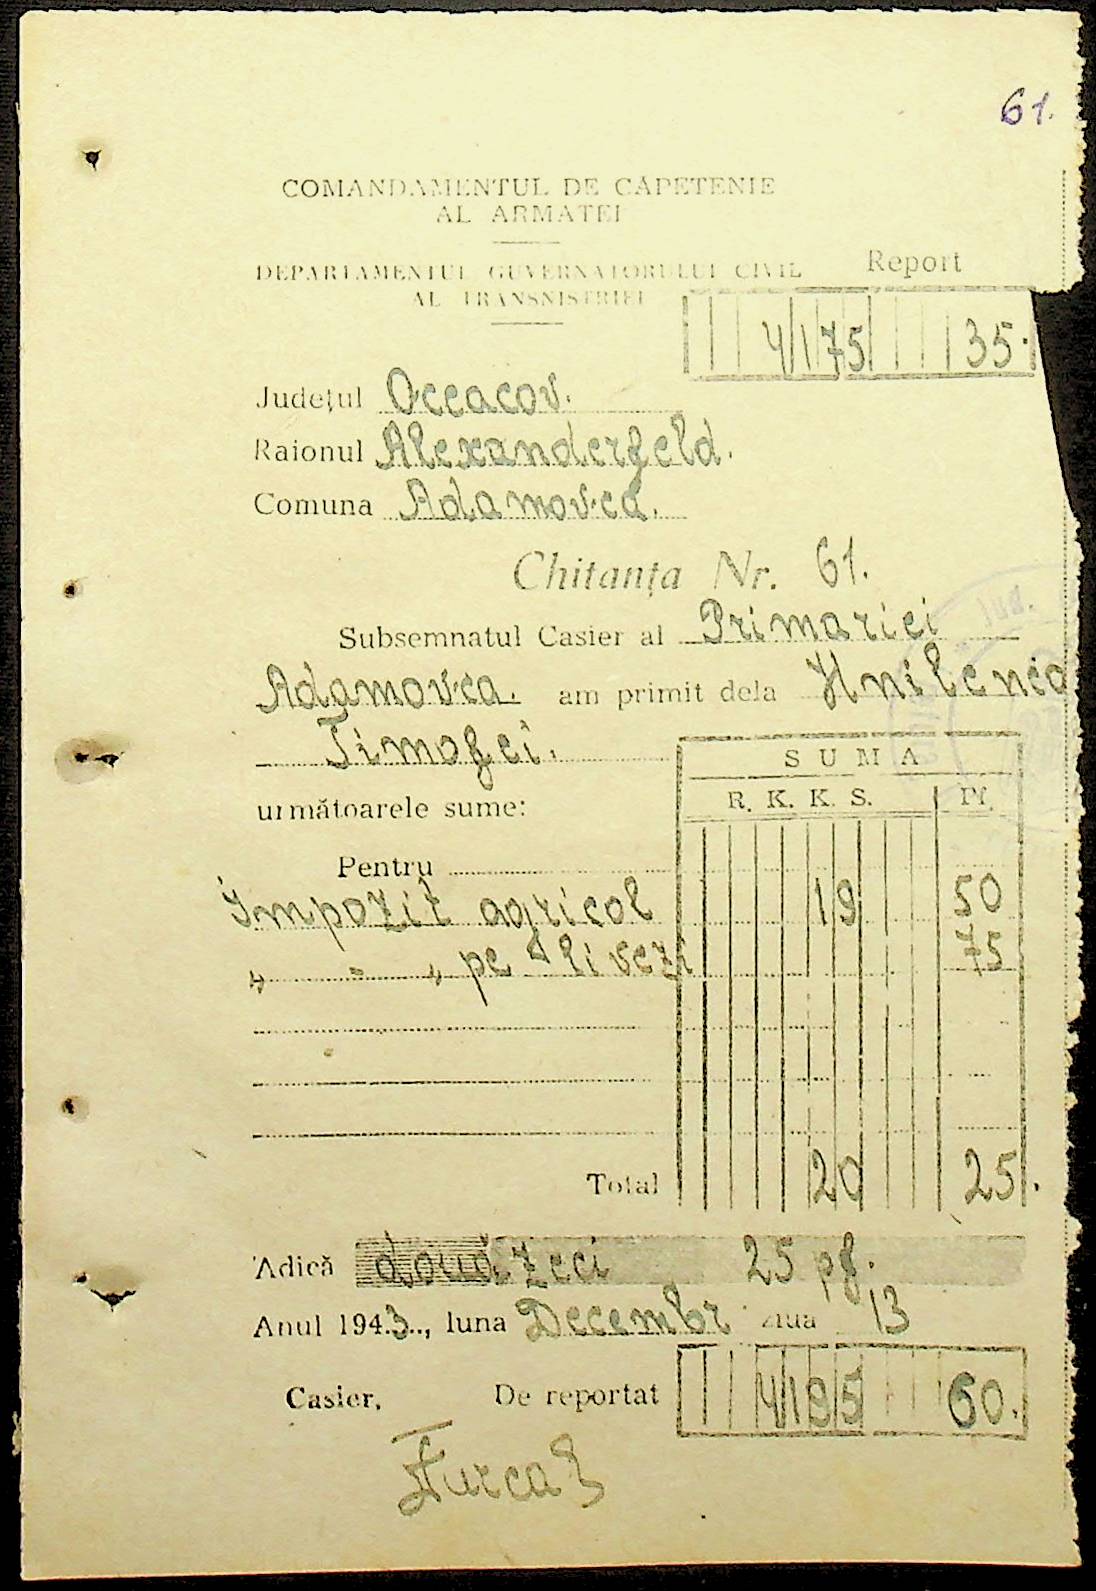 61.
COMANDAMENTUL DE CAPETENIE
AL ARMATEI
DEPARTAMENTUL GUVERNATORULUI CIVIL
AL TRANSNISTRIEI
Report
4175 35.
Județul Oceacov.
Raionul Alexanderfeld.
Comuna Adamovca.
Chitanța Nr. 61.
Subsemnatul Casier al Primariei
Adamovca. am primit dela Hnilenco
Timofei.
SUMA
următoarele sume: R. K. K. S. Pf.
Pentru
Impozit agricol 19 50
„ - „ pe livezi 75
Total 20 25.
Adică două zeci 25 pf.
Anul 1943.., luna Decembr ziua 13
Casier, De reportat 4195 60.